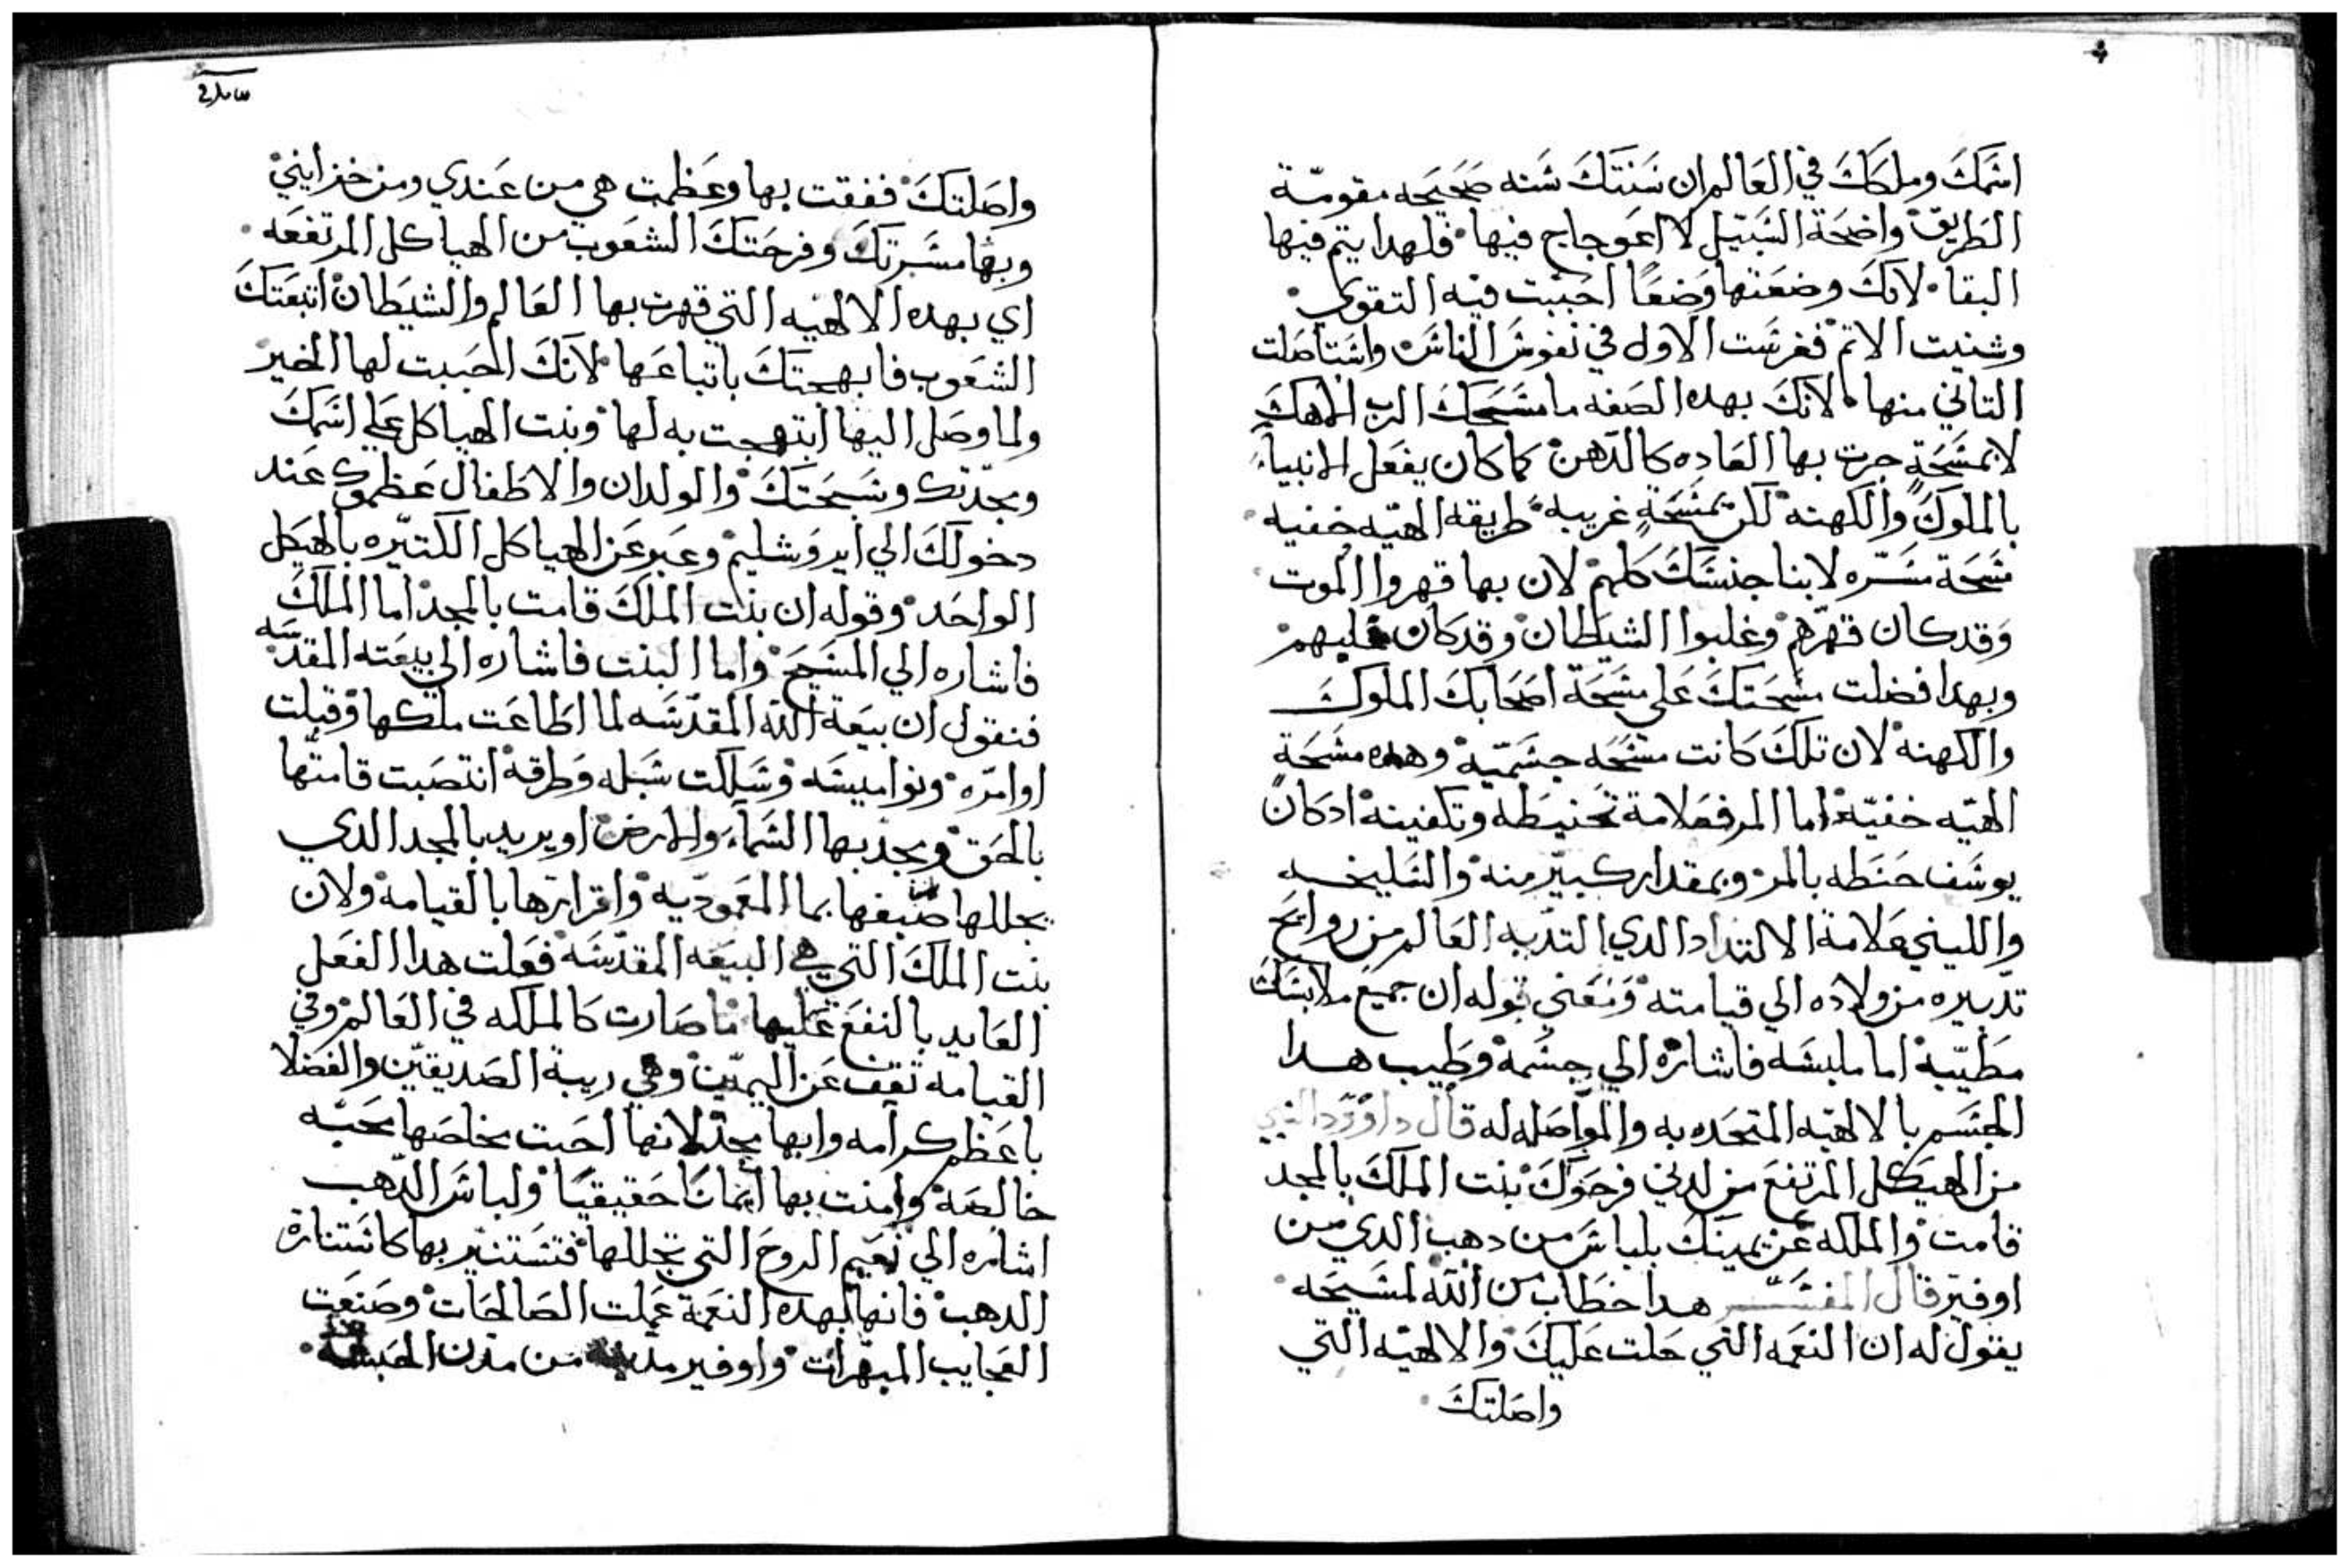 اسمك وملكك في العالم ان سنتك سنه صحيحه مقومة
الطريق واضحة السبيل لا اعوجاج فيها فلهدا يتم فيها
البقا لانك وضعتها وضعًا احببت فيه التقوى
وشنيت الاثم فغرست الاول في نفوس الناس واستاصلت
التاني منها لانك بهده الصفه ما مسحك الرب الاهك
لا بمسحةٍ جرت بها العاده كالدهن كما كان يفعل الانبياء
بالملوك والكهنه لكن بمسحةٍ غريبه طريقه الهيّه خفيه
مسحة مسرّه لابنا جنسك كلهم لان بها قهروا الموت
وقد كان قهرهم وغلبوا الشيطان وقد كان غلبهم
وبهدا فضلت مسحتك على مسحة اصحابك الملوك
والكهنه لان تلك كانت مسحه جسميّه وهده مسحة
الهيّه خفيّه اما المر فعلامة تحنيطه وتكفينه ادكان
يوسف حنطه بالمر وبمقدار كبير منه والسليخه
والليني علامة الالتداد الدي التدبه العالم من روايح
تدبيره من ولاده الي قيامته ومعني قوله ان جميع ملابسك
مطيّبه اما ملبسه فاشاره الي جسمه وطيب هدا
الجسم بالالهيّه المتحده به والمواصله له قال داوود النبي
من الهيكل المرتفع من لدني فرحوك بنت الملك بالمجد
قامت والملكه عن يمينك بلباس من دهب الدي من
اوفير قال المفسّر هدا خطاب من الله لمسيحه
يقول له ان النعمه التي حلت عليك والالهيّه التي
واصلتك
واصلتك ففقت بها وعظمت هي من عندي ومن خزايني
وبها مسرتك وفرحتك الشعوب من الهياكل المرتفعه
اي بهده الالهيّه التي قهرت بها العالم والشيطان اتبعتك
الشعوب فابهجتك باتباعها لانك احببت لها الخير
ولما وصل اليها ابتهجت به لها وبنت الهياكل علي اسمك
ومجدتك وسبحتك والولدان والاطفال عظموك عند
دخولك الي ايروشليم وعبر عن الهياكل الكتيره بالهيكل
الواحد وقوله ان بنت الملك قامت بالمجد اما الملك
فاشاره الي المسيح واما البنت فاشاره الي بيعته المقدسه
فنقول ان بيعة الله المقدسه لما اطاعت ملكها وقبلت
اوامره ونواميسه وسلكت سبله وطرقه انتصبت قامتها
بالحق ومجد بها السماء والارض او يريد بالمجد الدي
يجللها صبغها بما المعموديه واقرارها بالقيامه ولان
بنت الملك التي هي البيعه المقدسه فعلت هدا الفعل
العايد بالنفع عليها ما صارت كالملكه في العالم وفي
القيامه تقف عن اليمين وهي ربية الصديقين والفضلا
باعظم كرامه وابها مجد لانها احبت مخلصها محبّه
خالصه وامنت بها ايمانًا حقيقيًا ولباس الدهب
اشاره الي نعيم الروح التي تجللها فتستنير بها كاستنارة
الدهب فانها بهده النعمة عملت الصالحات وصنعت
العجايب المبهرات واوفير مدينه من مدن الحبشه